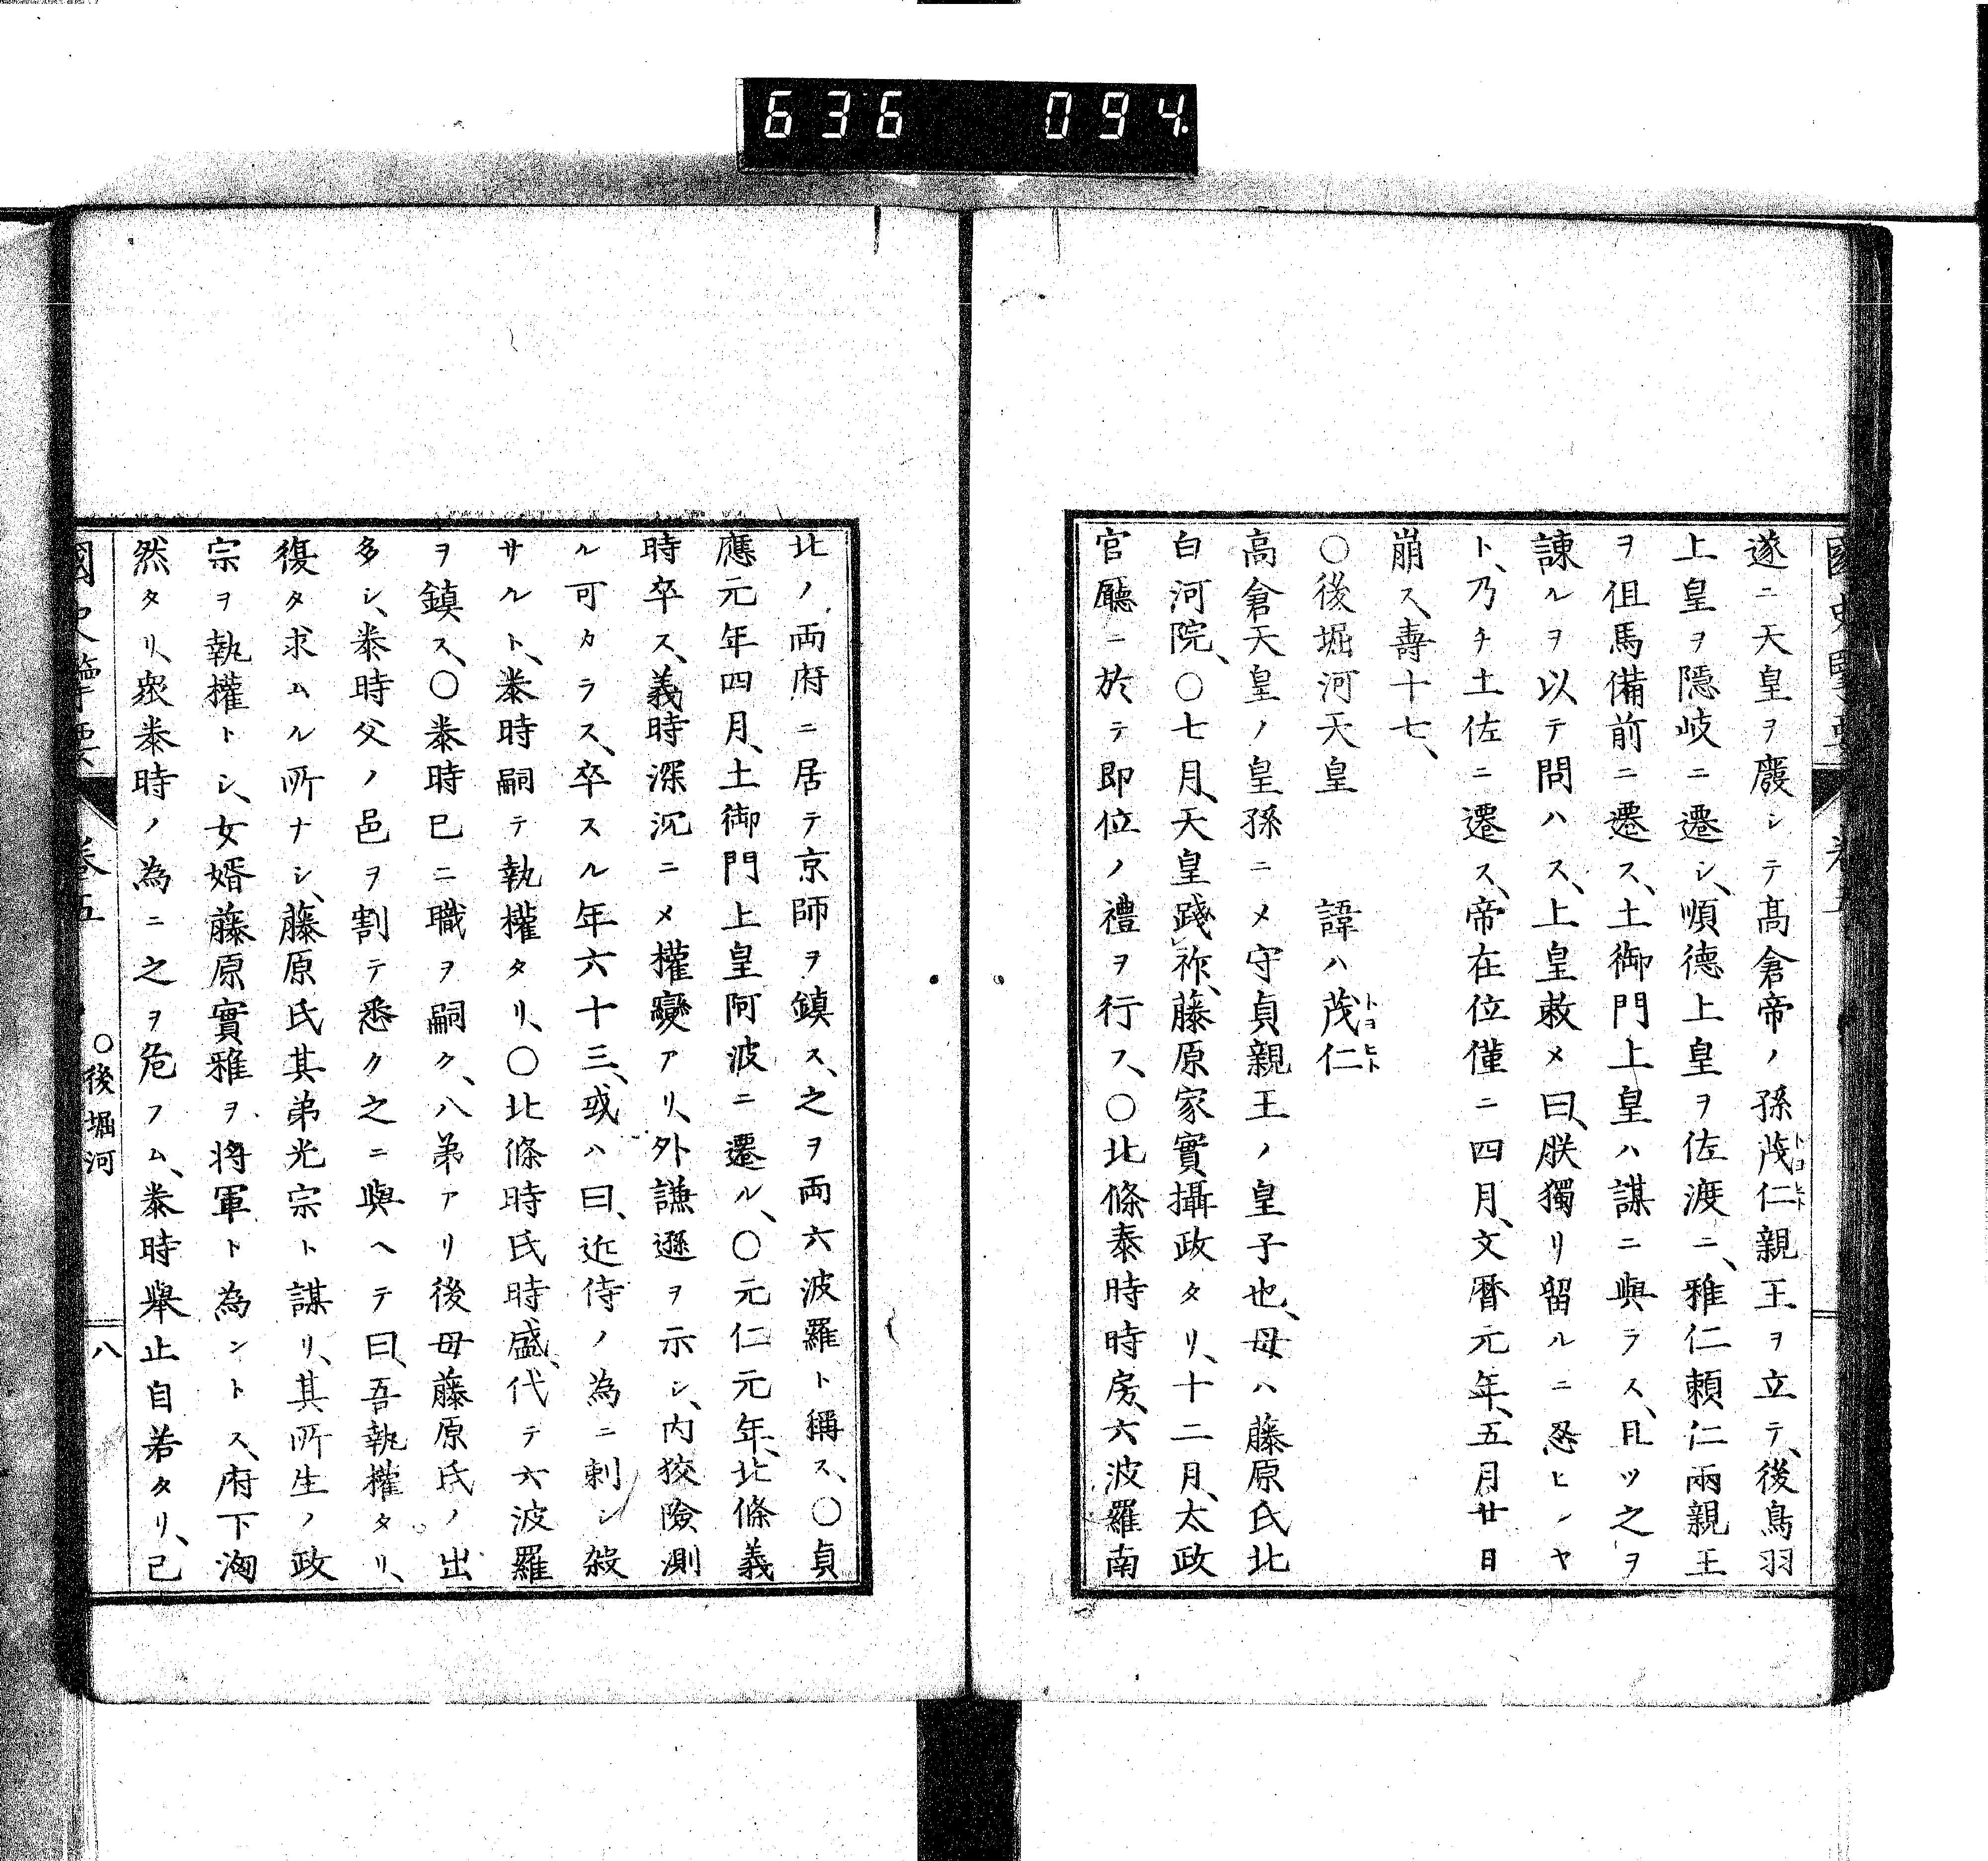 636 094
遂ニ天皇ヲ廢シテ高倉帝ノ孫茂仁親王ヲ立テ、後鳥羽
上皇ヲ隱岐ニ遷シ、順德上皇ヲ佐渡ニ、雅仁賴仁兩親王
ヲ但馬備前ニ遷ス、土御門上皇ハ謀ニ與ラス、且ツ之ヲ
諌ルヲ以テ問ハス、上皇敕メ曰、朕獨リ留ルニ忍ヒンヤ
ト、乃チ土佐ニ遷ス、帝在位僅ニ四月、文曆元年、五月廿日
崩ス、壽十七、
〇後堀河天皇 諱ハ茂仁
トヨヒト
高倉天皇ノ皇孫ニメ守貞親王ノ皇子也、母ハ藤原氏北
白河院、〇七月、天皇踐祚、藤原家實攝政タリ、十二月、太政
官廳ニ於テ即位ノ禮ヲ行フ、〇北條泰時時房、六波羅南
北ノ両府ニ居テ京師ヲ鎮ス、之ヲ両六波羅ト稱ス、〇貞
應元年四月、土御門上皇阿波ニ遷ル、〇元仁元年、北條義
時卒ス、義時深沉ニメ權變アリ、外謙遜ヲ示シ、内狡險測
ル可カラス、卒スル年六十三、或ハ曰、近侍ノ為ニ刺シ殺
サルト、泰時嗣テ執權タリ、〇北條時氏時盛、代テ六波羅
ヲ鎮ス、〇泰時已ニ職ヲ嗣ク、八弟アリ後母藤原氏ノ出
多シ、泰時父ノ邑ヲ割テ悉ク之ニ與ヘテ曰、吾執權タリ、
復タ求ムル所ナシ、藤原氏其弟光宗ト謀リ、其所生ノ政
宗ヲ執權トシ、女婿藤原實雅ヲ將軍ト為ントス、府下洶
然タリ、衆泰時ノ為ニ之ヲ危フム、泰時舉止自若タリ、已
國史擥要 卷五 〇後堀河 八